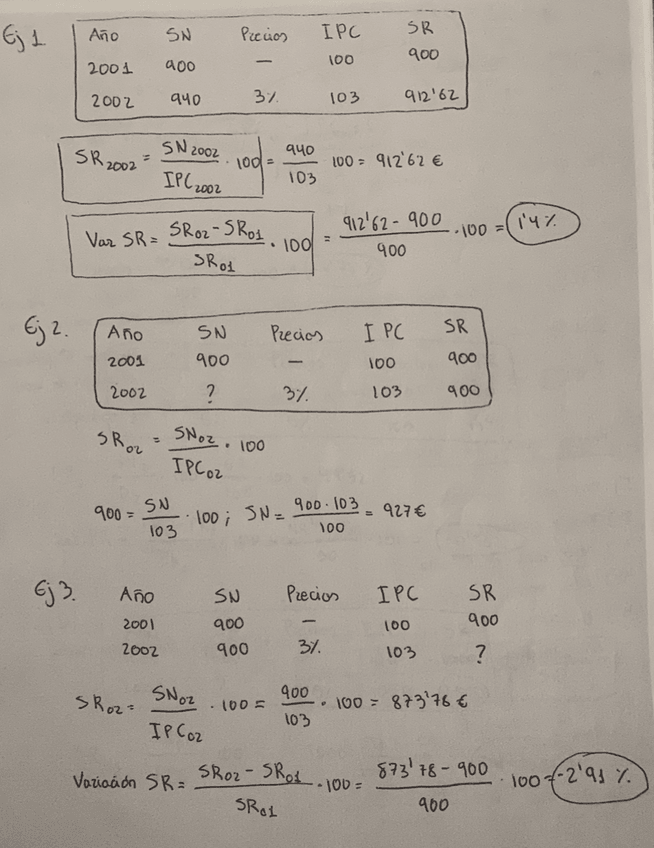 Ej 1. Año SN Precios IPC SR
2001 900 — 100 900
2002 940 3% 103 912'62
SR2002 = SN2002 / IPC2002 · 100 = 940 / 103 100 = 912'62 €
Var SR = SR02 - SR01 / SR01 · 100 = 912'62 - 900 / 900 · 100 = 1'4%
Ej 2. Año SN Precios IPC SR
2001 900 — 100 900
2002 ? 3% 103 900
SR02 = SN02 / IPC02 · 100
900 = SN / 103 · 100 ; SN = 900 · 103 / 100 = 927 €
Ej 3. Año SN Precios IPC SR
2001 900 — 100 900
2002 900 3% 103 ?
SR02 = SN02 / IPC02 · 100 = 900 / 103 · 100 = 873'76 €
Variación SR = SR02 - SR01 / SR01 · 100 = 873'78 - 900 / 900 · 100 = -2'91 %